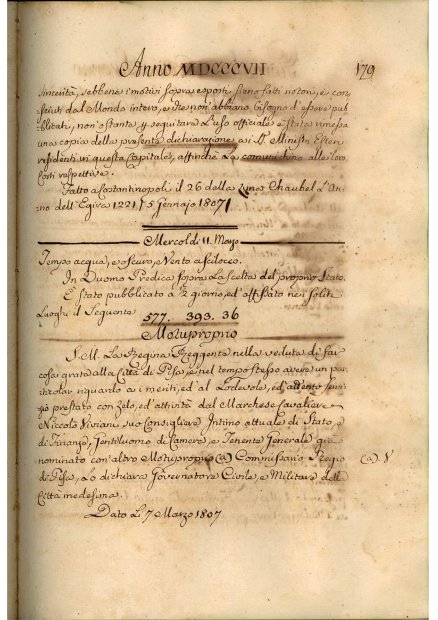 Anno MDCCCVII
179
sincerità, sebbene i motivi sopra esposti sieno fatti notori, e con-
sciuti dal Mondo intero, e che non abbiano bisogno d'essere pub-
blicati, non ostante p seguitare l'uso officiale è stata rimessa
una copia della presente dichiarazione a i SS. Ministri Esteri
residenti in questa Capitale, affinchè la comunichino alle loro
Corti respettive.
Fatto a Costantinopoli il 26 della Luna Chaubel L'An-
no dell'Egira 1221 / 5 Gennajo 1807 /
Mercoldì 11. Marzo
Tempo acqua, e oscuro, e Vento a scilocco.
In Duomo Predica sopra La scelta del proprio Stato.
È stato pubblicato a ½ giorno, ed affissato nei soliti
Luoghi il Seguente
577. 393. 36
Motuproprio
S. M. La Regina Reggente nella veduta di far
cosa grata alla Città di Pisa, e nel tempo stesso avere un par-
ticolar riguardo ai meriti, ed al Lodevole, ed attento servi-
gio prestato con zelo, ed attività dal Marchese Cavaliere
Niccola Viviani suo Consigliere Intimo attuale di Stato, e
di Finanze, Gentiluomo di Camera, e Tenente Generale già
nominato con altro Motuproprio (a) Commissario Regio (a) V.
di Pisa, Lo dichiara Governatore Civile, e Militare della
Città medesima.
Dato Li 7 Marzo 1807